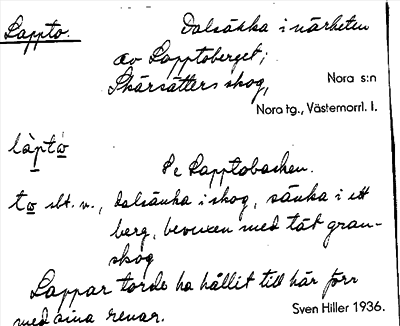 Lappto.
Dalsänka i närheten
av Lapptoberget;
Skärsätters skog,
Nora s:n
Nora tg., Västernorrl. l.
làptω
Se Lapptobacken.
tω st. n., dalsänka i skog, sänka i ett
berg, bevuxen med tät gran-
skog
Lappar torde ha hållit till här förr
med sina renar.
Sven Hiller 1936.